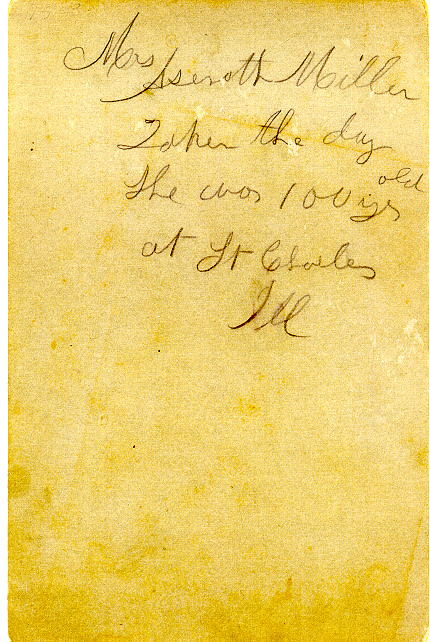 Mrs Asenath Miller
Taken the day
She was 100 yrs old
at St Charles
Ill